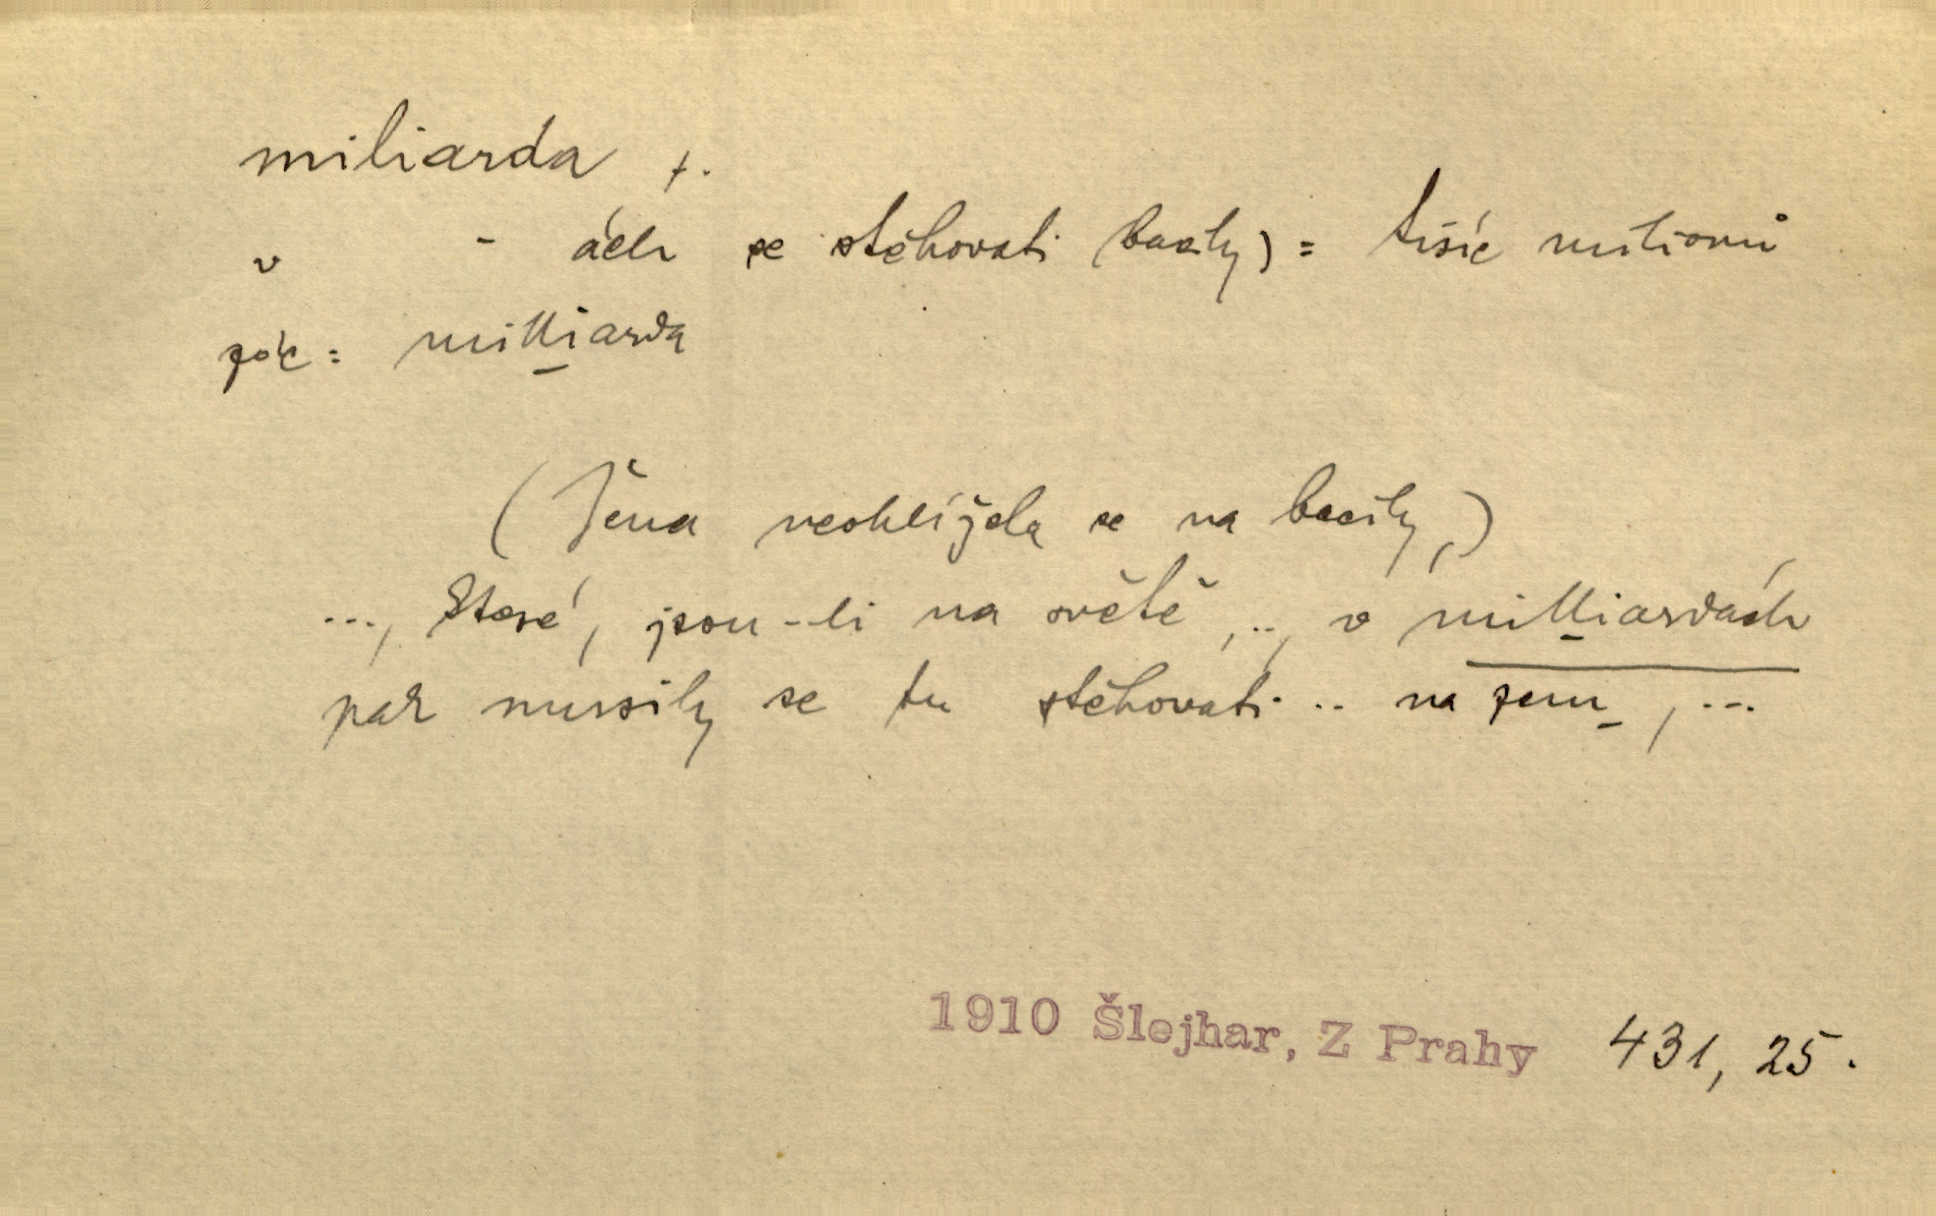 miliarda f.
v - ách se stěhovati (bacily) = tisíc milionů
zde = milliarda
(Žena neohlížela se na bacily,)
..., které, jsou-li na světě, .., v milliardách
pak musily se tu stěhovati .. na zem, ...
1910 Šlejhar, Z Prahy 431, 25.